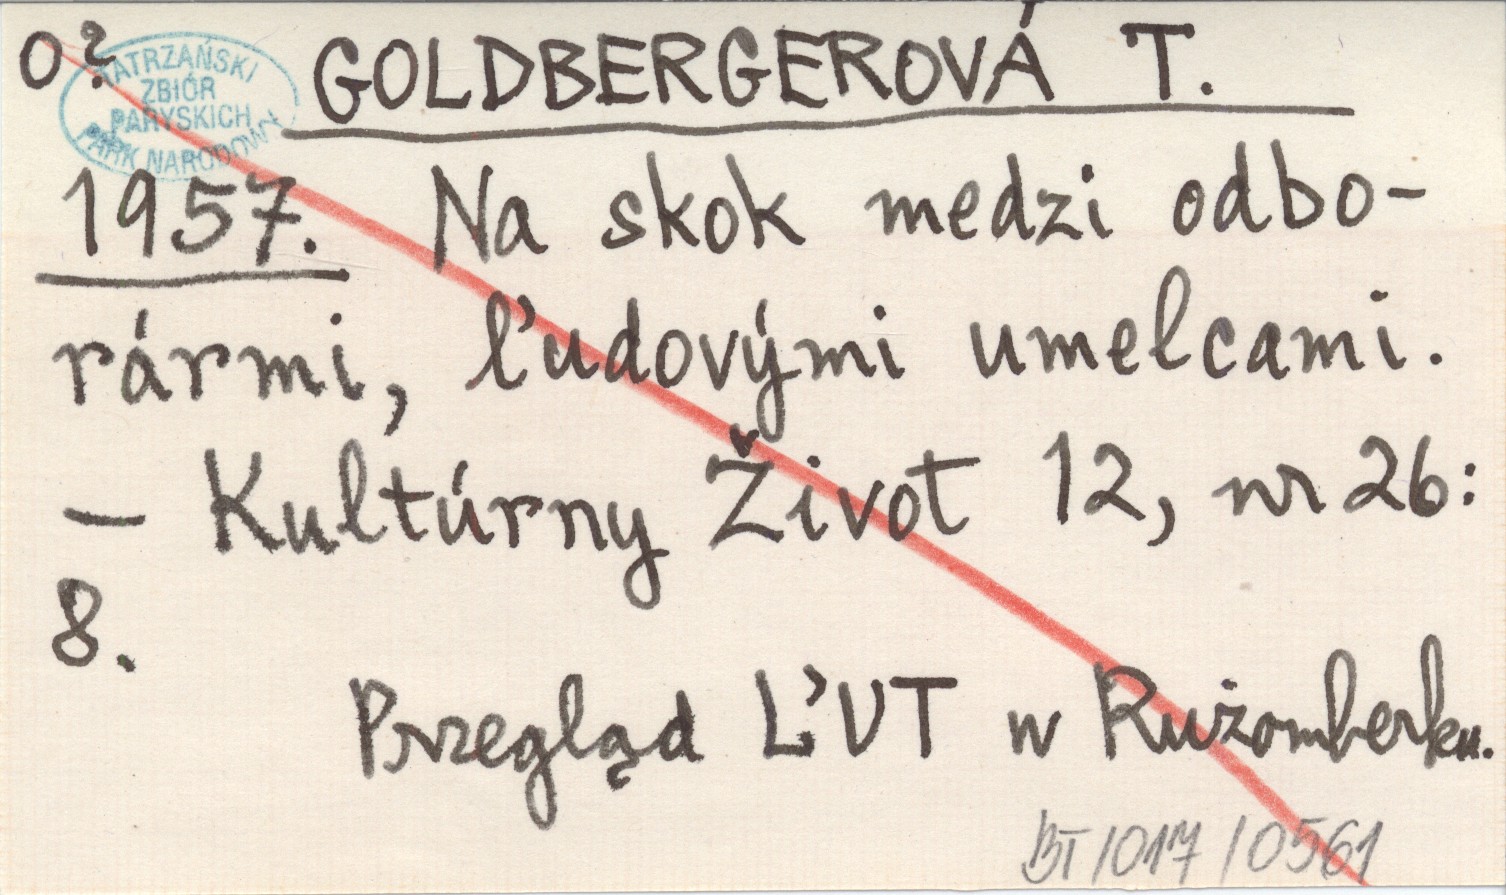 O? GOLDBERGEROVÁ T.
TATRZAŃSKI
ZBIÓR
PARYSKICH
PARK NARODOWY
1957. Na skok medzi odbo-
rármi, ľudovými umelcami.
— Kultúrny Život 12, nr 26:
8.
Przegląd ĽUT w Rużomberku.
BT/017/0561